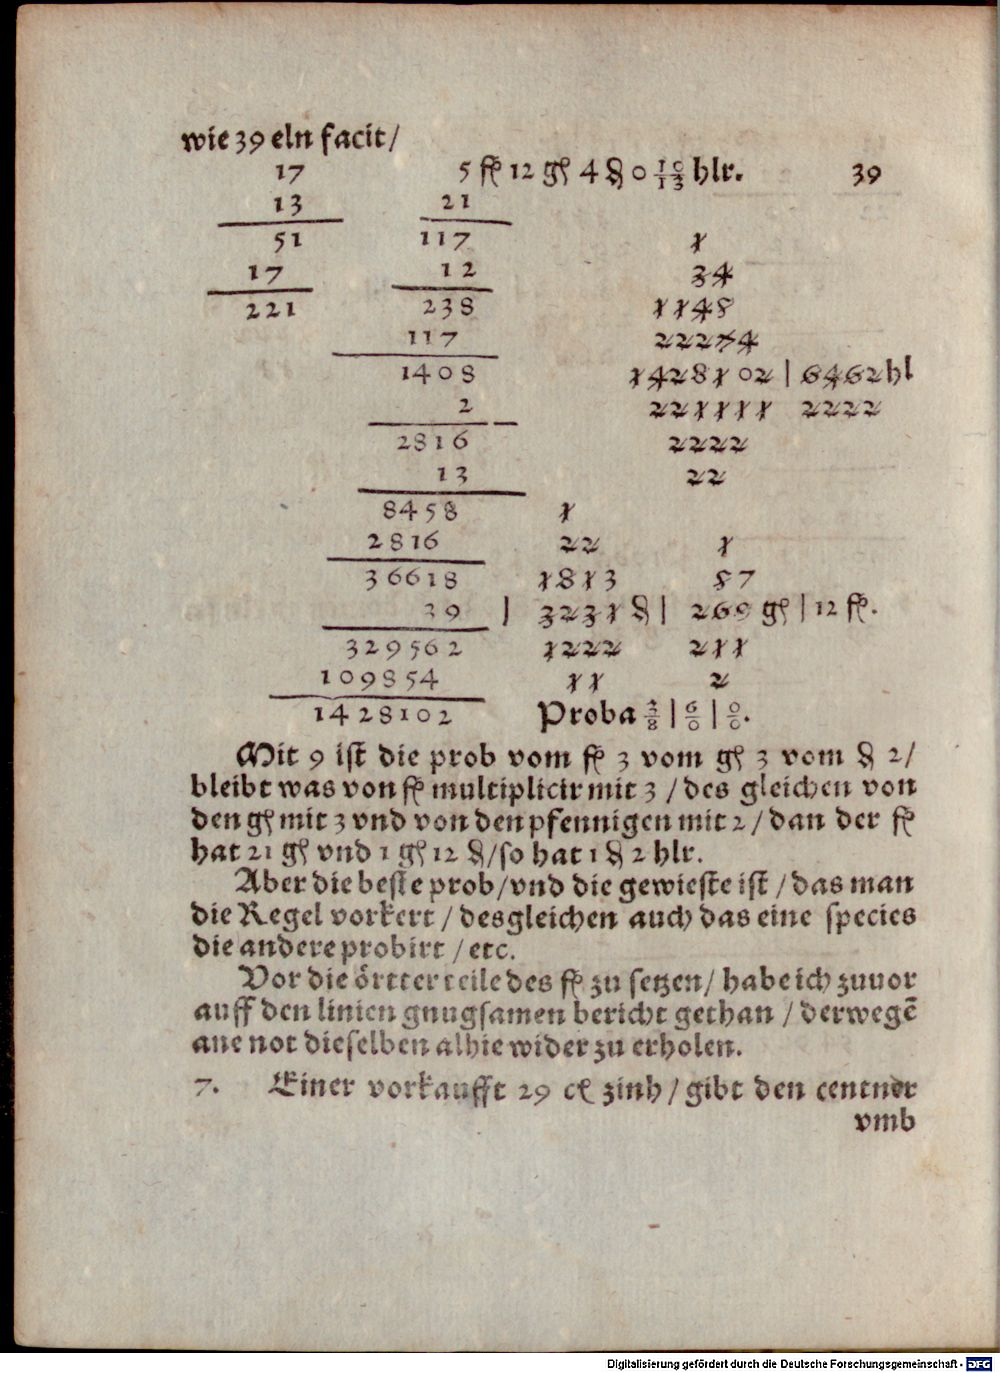 wie 39 eln facit/
17 5 fl 12 gſ 4 ₰ 0 10/13 hlr. 39
13 21
51 117 1
17 12 34
221 238 1148
117 22274
1408 1428102 | 6462 hl
2 221111 2222
2816 2222
13 22
8458 1
2816 22 1
36618 1813 87
39 | 3231 ₰ | 269 gſ | 12 fl.
329562 1222 211
109854 11 2
1428102 Proba 2/8 | 6/0 | 0/0.
Mit 9 ist die prob vom fl 3 vom gſ 3 vom ₰ 2/
bleibt was von fl multiplicir mit 3 / des gleichen von
den gſ mit 3 vnd von den pfennigen mit 2 / dan der fl
hat 21 gſ vnd 1 gſ 12 ₰/so hat 1 ₰ 2 hlr.
Aber die beste prob/vnd die gewieste ist / das man
die Regel vorkert / desgleichen auch das eine species
die andere probirt / etc.
Vor die örtter teile des fl zu setzen/ habe ich zuuor
auff den linien gnugsamen bericht gethan / derwegē
ane not dieselben alhie wider zu erholen.
7. Einer vorkaufft 29 cſ zinh / gibt den centner
vmb
Digitalisierung gefördert durch die Deutsche Forschungsgemeinschaft - DFG